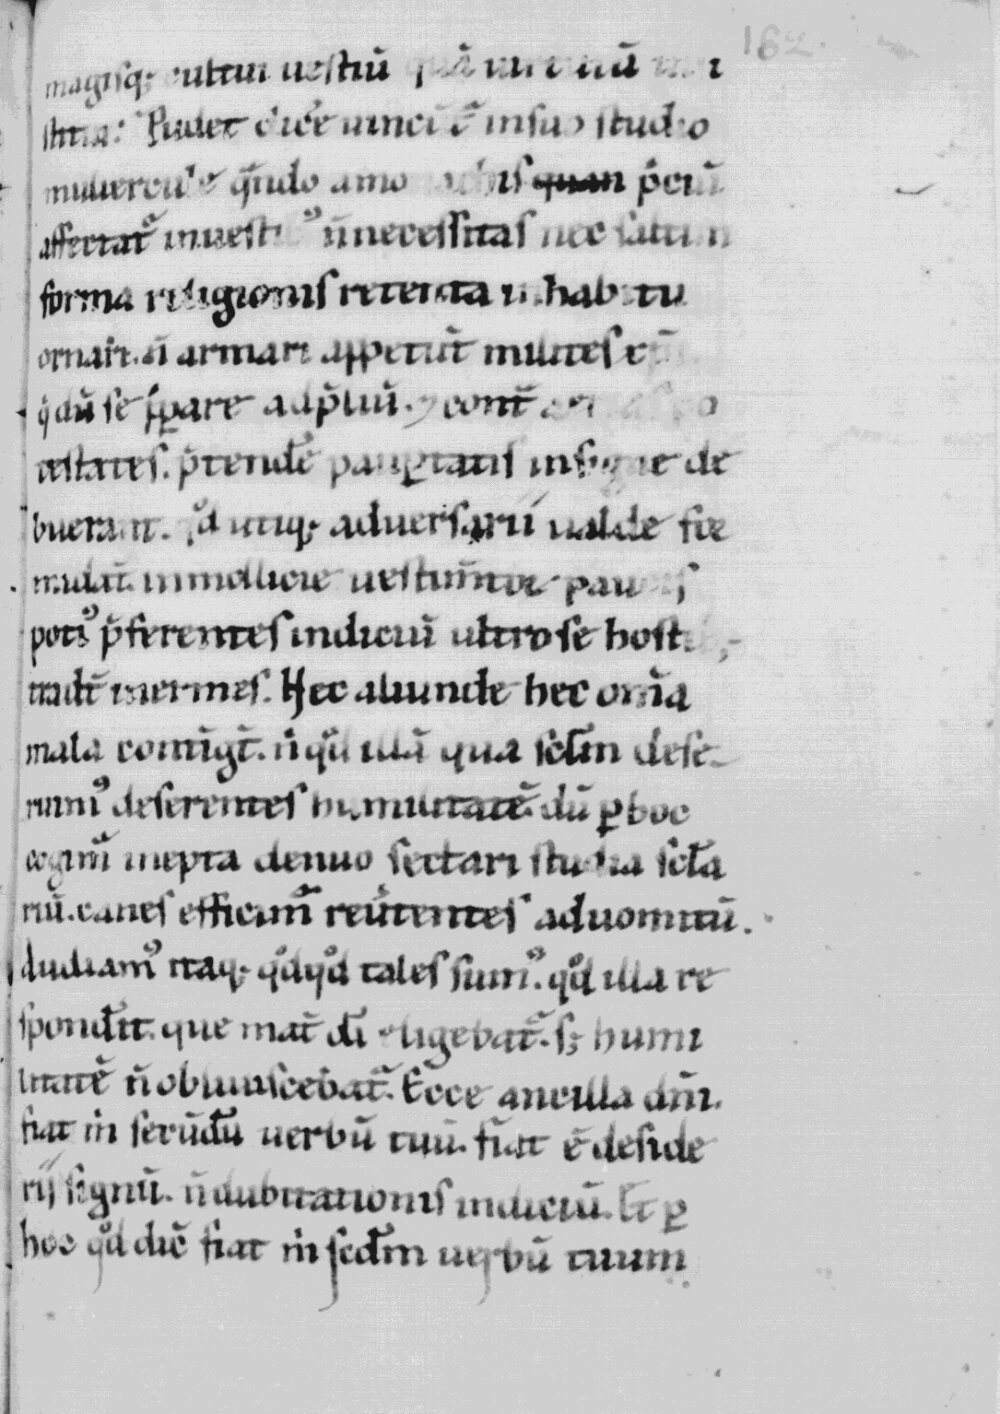 162.
magisq; cultui uestiū quā uirtutū
stitia: Pudet dic̄e uinci
muliercule q̄ndo a monachis quan p̄ciū
affectat᷑ in uestibꝰ n̄ necessitas nec saltim
forma religionis retenta in habitu
ornari. n̄ armari appetūt milites xp̄i
q̇ dū se p̄pare ad p̄liū. ⁊ cont̄
testates. p̄tendē paup̄tatis insigne de
buerant. q̇d utiq; aduersarii ualde for
midāt. in mollicie uestimtoꝝ pacis
potiꝰ p̄ferentes indiciū ultro se hostibꝫ
tradt̄ inermes. Hec aliunde hec om̄ia
mala contīgt̄. n̄ qd̄ illā qua sc̄lm dese-
ruimꝰ deserentes humilitatē. dū ꝑ hoc
cogimᷓ inepta denuo sectari studia sc̄la
riū. canes efficimᷓ reūtentes ad uomitū.
Audiamꝰ itaq; q̇d q̇d tales sumꝰ. q̇d illa re
spondit. que mat̄ di eligebat᷑. sꝫ humi
litatē n̄ obliuiscebat᷑. Ecce ancilla dn̄i.
fiat m̊ secūdū uerbū tuū. fiat ē deside
rii signū. n̄ dubitationis indiciū. Et ꝑ
hoc qd̄ dic̄ fiat m̊ scd̄m uerbū tuum